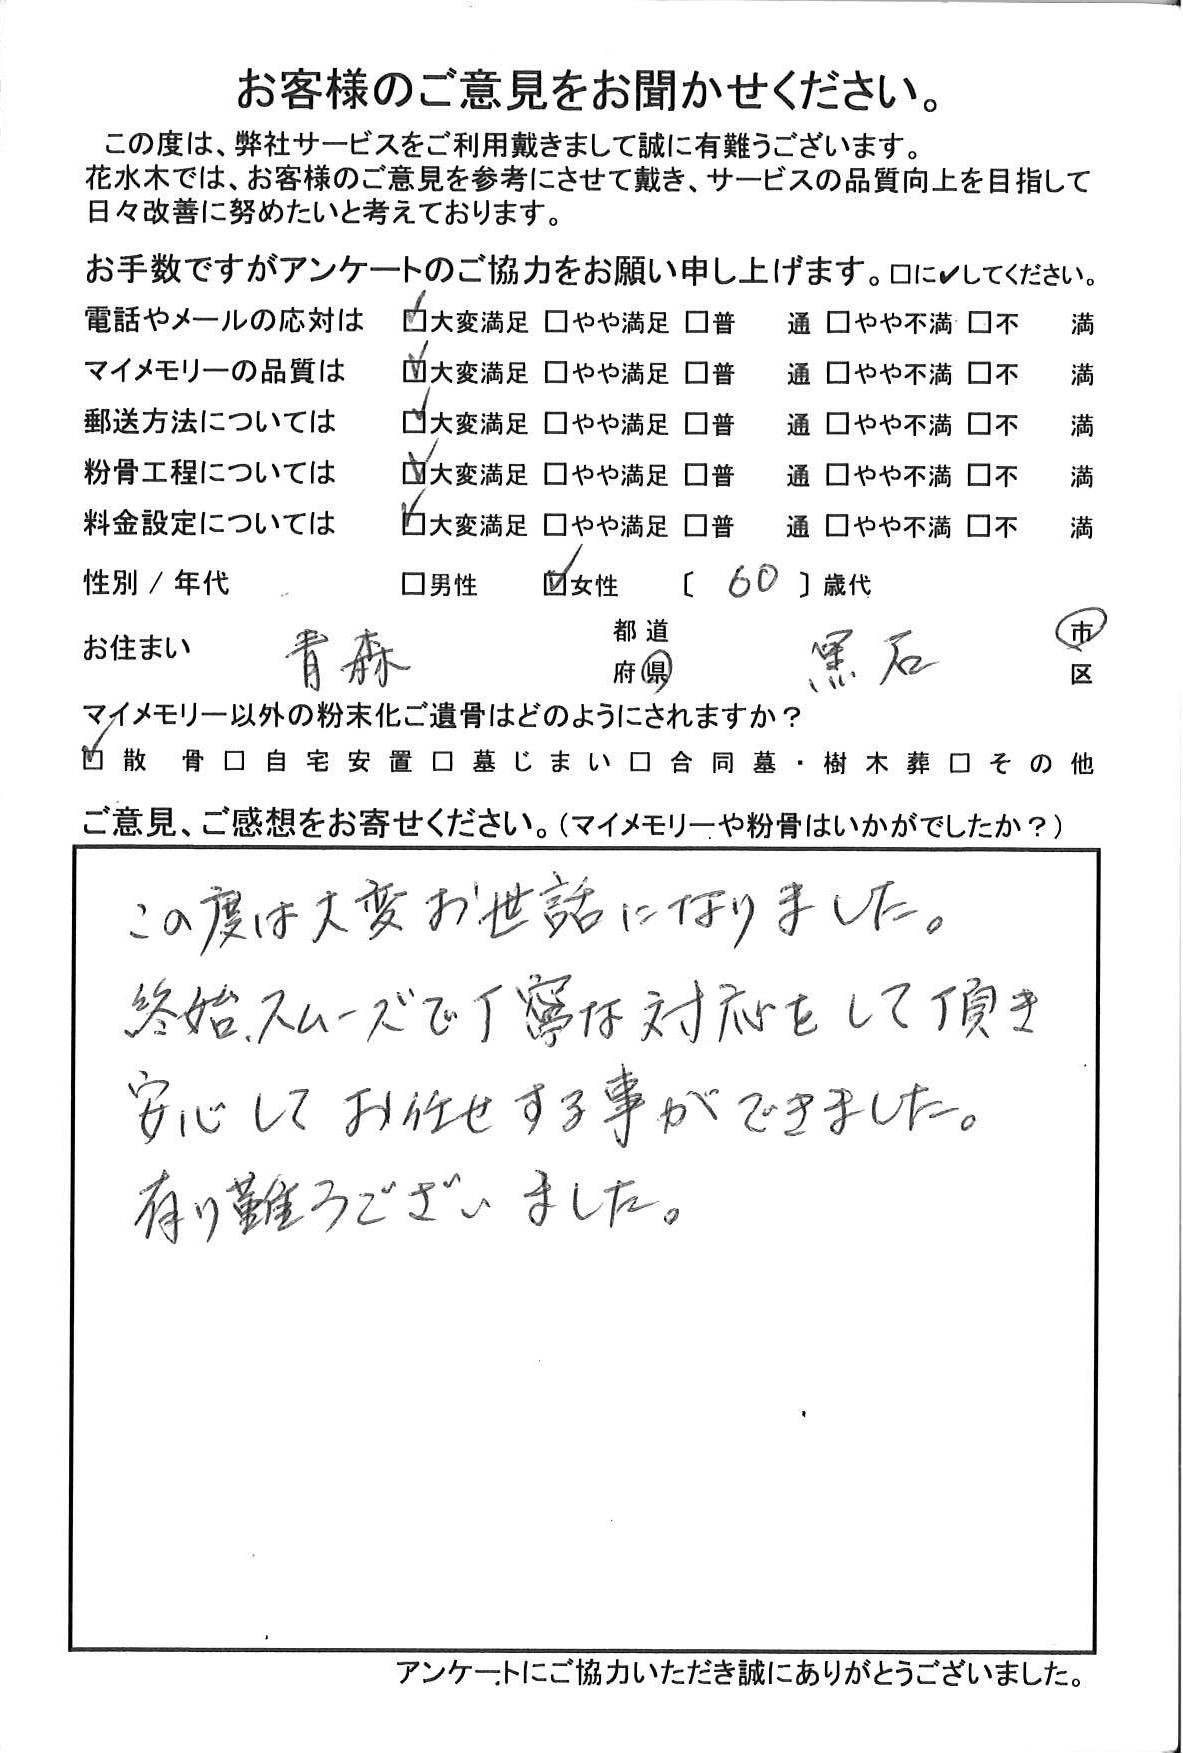 お客様のご意見をお聞かせください。
この度は、弊社サービスをご利用戴きまして誠に有難うございます。
花水木では、お客様のご意見を参考にさせて戴き、サービスの品質向上を目指して
日々改善に努めたいと考えております。
お手数ですがアンケートのご協力をお願い申し上げます。□に✔してください。
電話やメールの応対は ☑大変満足 □やや満足 □普 通 □やや不満 □不 満
マイメモリーの品質は ☑大変満足 □やや満足 □普 通 □やや不満 □不 満
郵送方法については ☑大変満足 □やや満足 □普 通 □やや不満 □不 満
粉骨工程については ☑大変満足 □やや満足 □普 通 □やや不満 □不 満
料金設定については ☑大変満足 □やや満足 □普 通 □やや不満 □不 満
性別 / 年代 □男性 ☑女性 〔 60 〕歳代
お住まい 青森 都道府県 黒石 市区
マイメモリー以外の粉末化ご遺骨はどのようにされますか?
☑散 骨□自宅安置□墓じまい□合同墓・樹木葬□その他
ご意見、ご感想をお寄せください。(マイメモリーや粉骨はいかがでしたか?)
この度は大変お世話になりました。
終始、スムーズで丁寧な対応をして頂き
安心してお任せする事ができました。
有り難うございました。
アンケートにご協力いただき誠にありがとうございました。